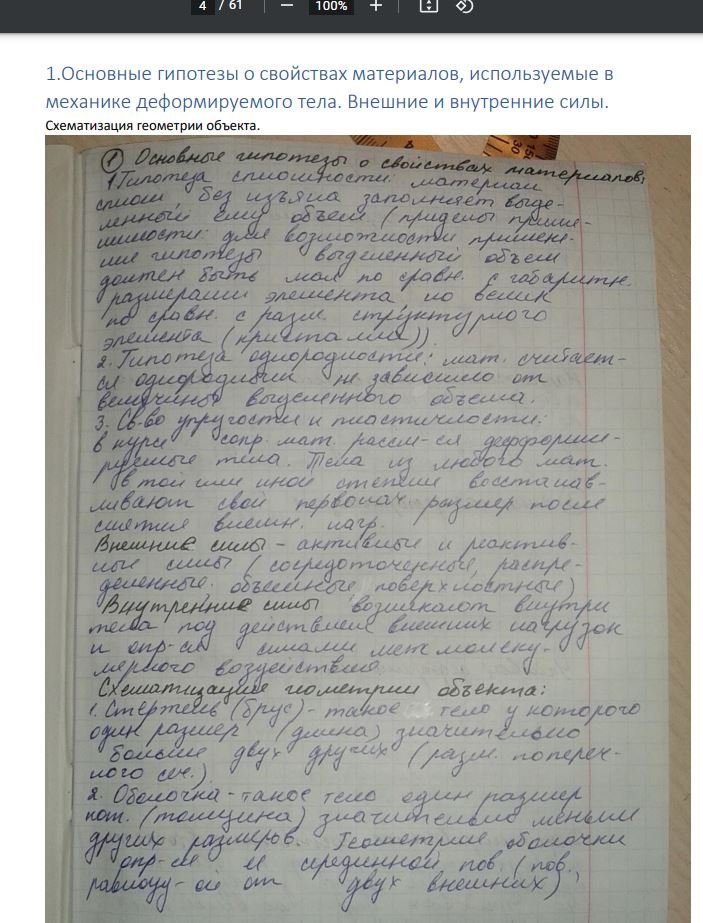 4 / 61 — 100% +
1.Основные гипотезы о свойствах материалов, используемые в
механике деформируемого тела. Внешние и внутренние силы.
Схематизация геометрии объекта.
① Основные гипотезы о свойствах материалов;
1. Гипотеза сплошности: материал
сплош, без изъяна заполняет выде-
ленный ему объем (приделы приме-
нимости: для возможности примен-
ния гипотезы выделенный объем
должен быть мал по сравн. с габаритн.
размерами элемента, но велик
по сравн. с разм. структурного
элемента (кристалла)).
2. Гипотеза однородности: мат. считает-
ся однородным не зависимо от
величины выделенного объема.
3. Св-во упругости и пластичности:
в курсе сопр. мат. рассм-ся дефформи-
руемые тела. Тела из любого мат.
в той или иной степени восстанав-
ливают свой первонач. размер после
снятия внешн. нагр.
Внешние силы - активные и реактив-
ные силы (сосредоточенные, распре-
деленные. объемные, поверхностные)
Внутренние силы возникают внутри
тела под действием внешних нагрузок
и опр-ся силами межмолеку-
лярного воздействия.
Схематизация геометрии объекта:
1. Стержень (брус) - такое тело у которого
один размер (длина) значительно
больше двух других (разм. попереч-
ного сеч.)
2. Оболочка - такое тело один размер
кот. (толщина) значительно меньше
других размеров. Геометрия оболочки
опр-ся её серединной пов. (пов.,
равноуд-ой от двух внешних),